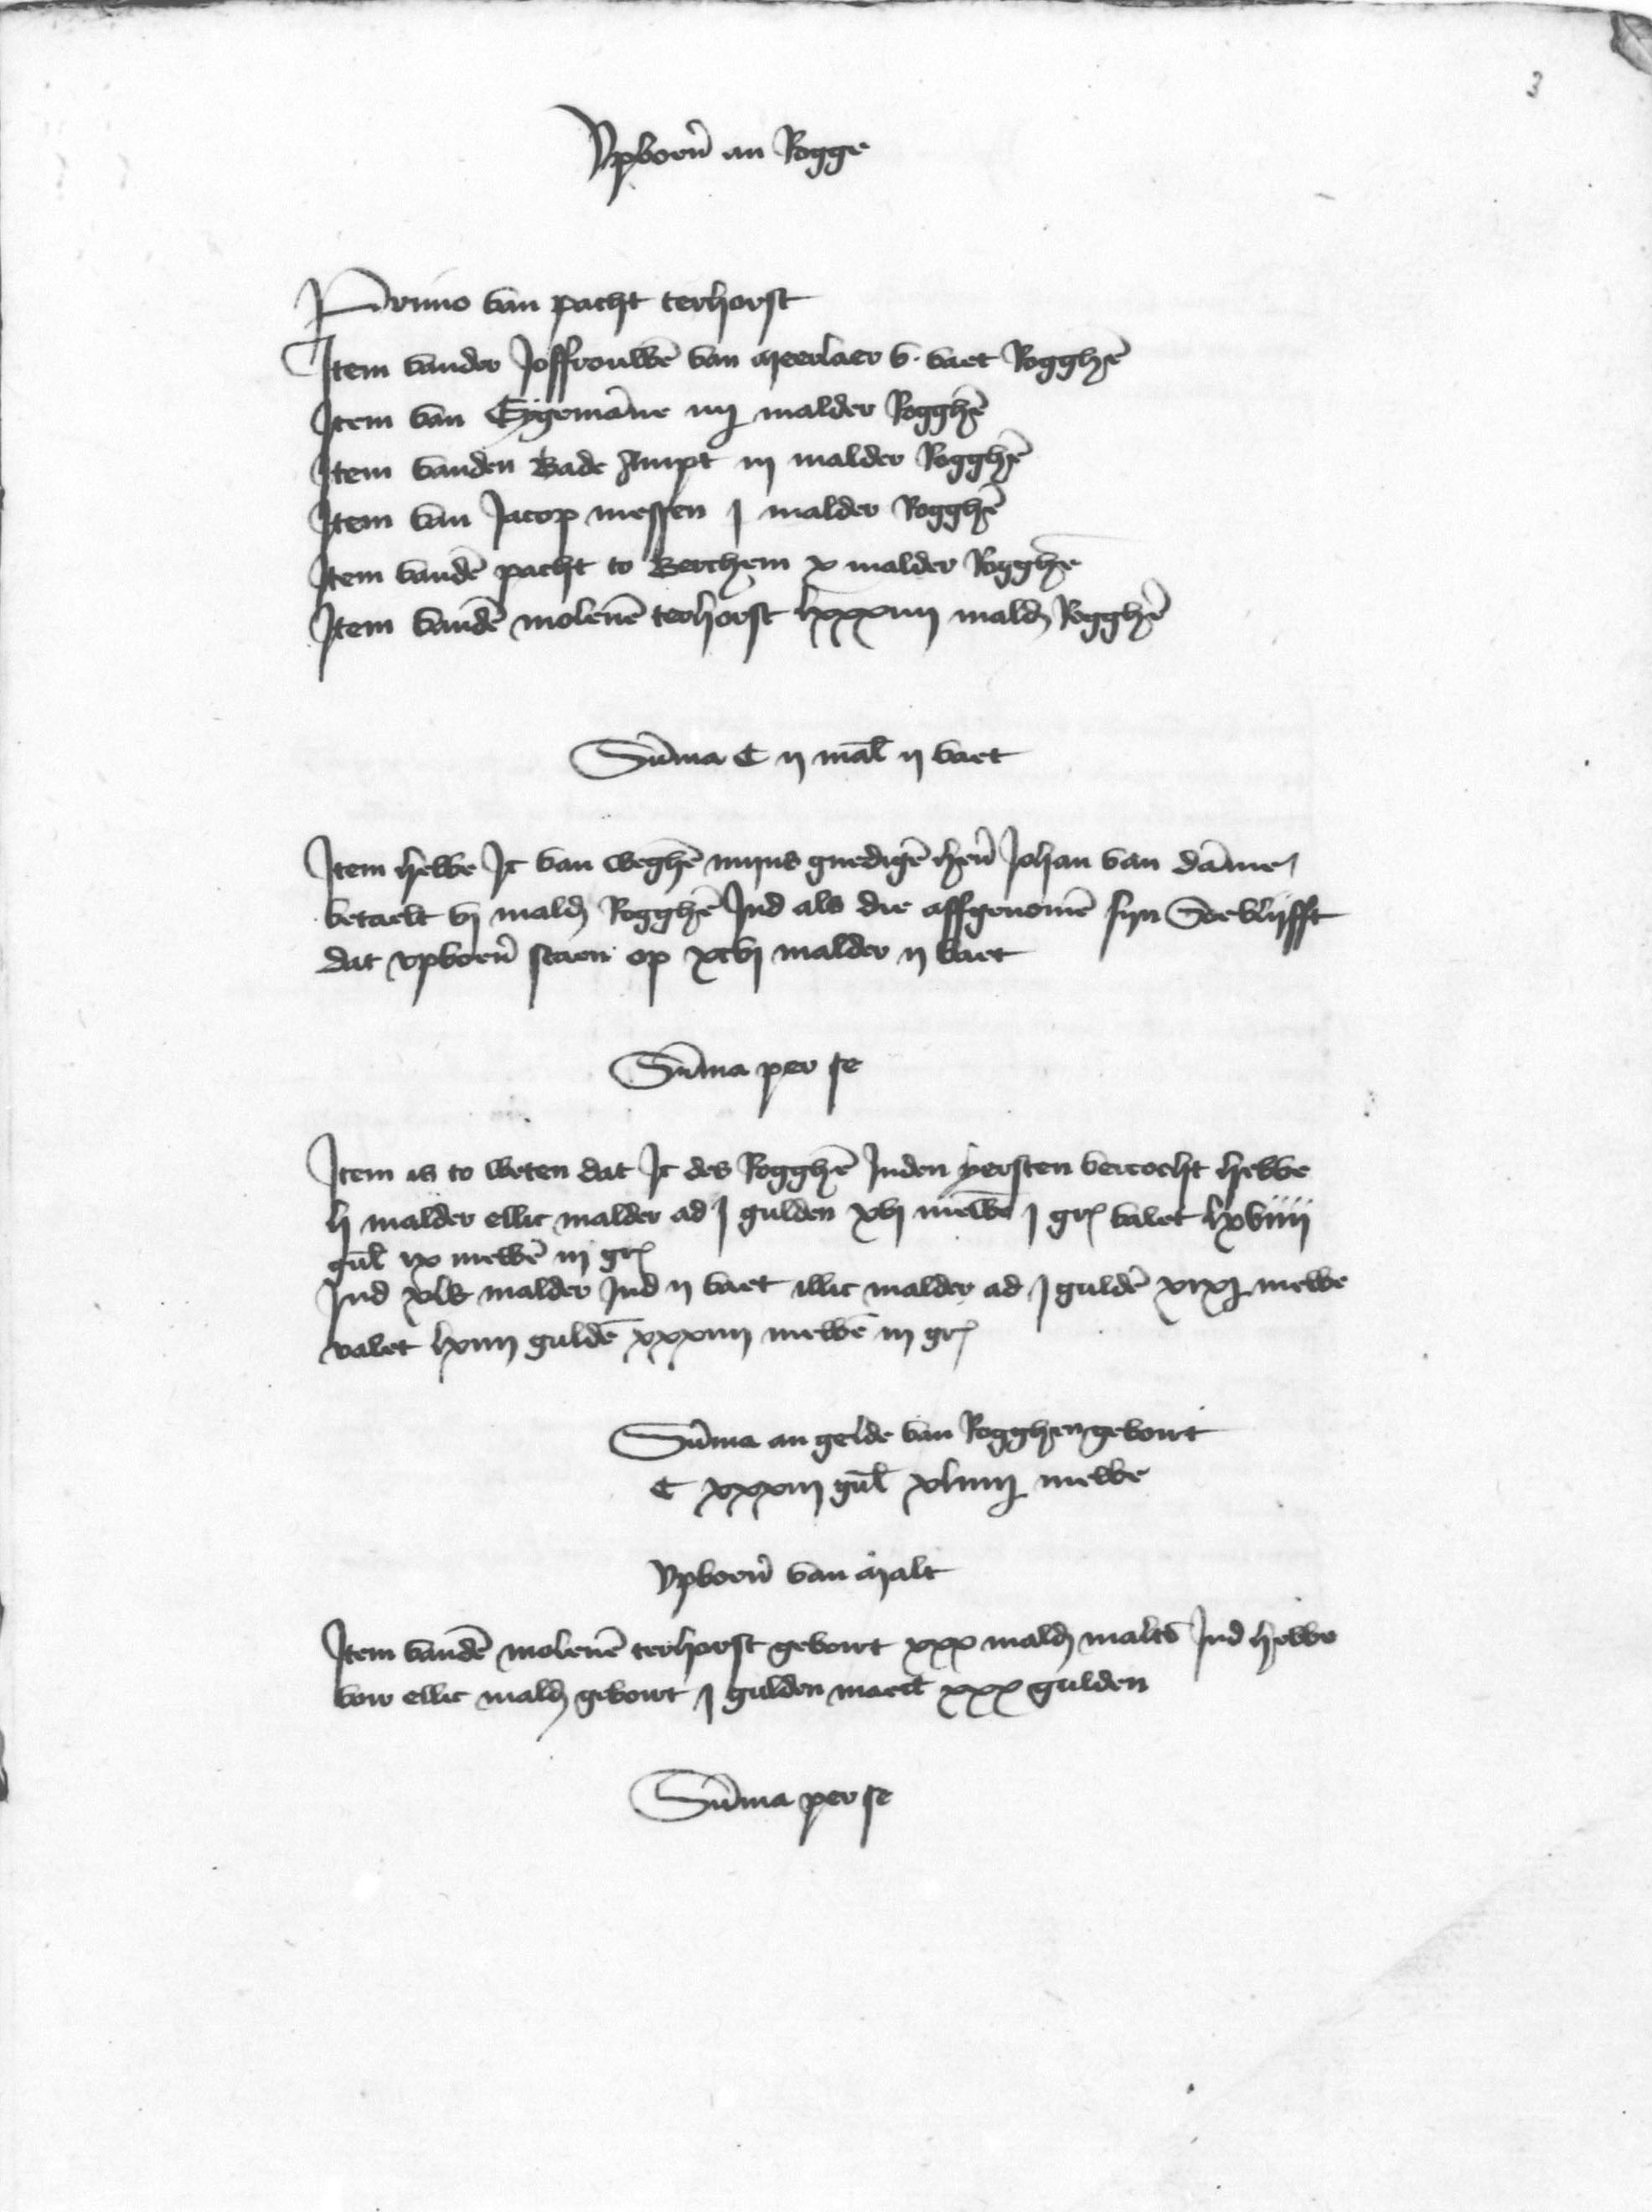 3
Vpboern̄ an Rogge
Primo van pacht terhorst
Item vander Joffrouwē van Meerlaer v. vaet Rogghē
Item van Tÿgemāne iiij malder Rogghē
Item vanden Bade Ampt iij malder Rogghē
Item van Jacop messen j malder Rogghē
Item vandē pacht to Berchem x malder Rogghē
Item vandē molenē terhorst lxxxiiij mald Rogghē
Sūma C ij mal̄ ij vaet
Item hebbe Jc van weghē mijns gnedigē hern̄ Johan van dāme
betaelt vj mald Rogghē Ind als die affgenomē sijn Soe blijfft
dat vpboern̄ staen op xcvj malder ij vaet
Sūma per se
Item is to weten dat Jc des Rogghē Inden yersten vercocht hebbe
lj malder ellic malder ad j gulden xvj mewē j gr valet lxviiij
gul̄ ix mewē iij gr
Ind xlv malder Ind ij vaet illic malder ad j guldē xixj mewe
valet lxiiij guldē xxxiiij mewē iij gr
Sūma an gelde van Rogghen gebourt
C xxxiij gul̄ xliiij mewe
Vpboern̄ van Malt
Item vandē molenē terhorst gebourt xxx mald malts Ind hebbe
vour ellic mald gebourt j gulden maect xxx gulden
Sūma per se